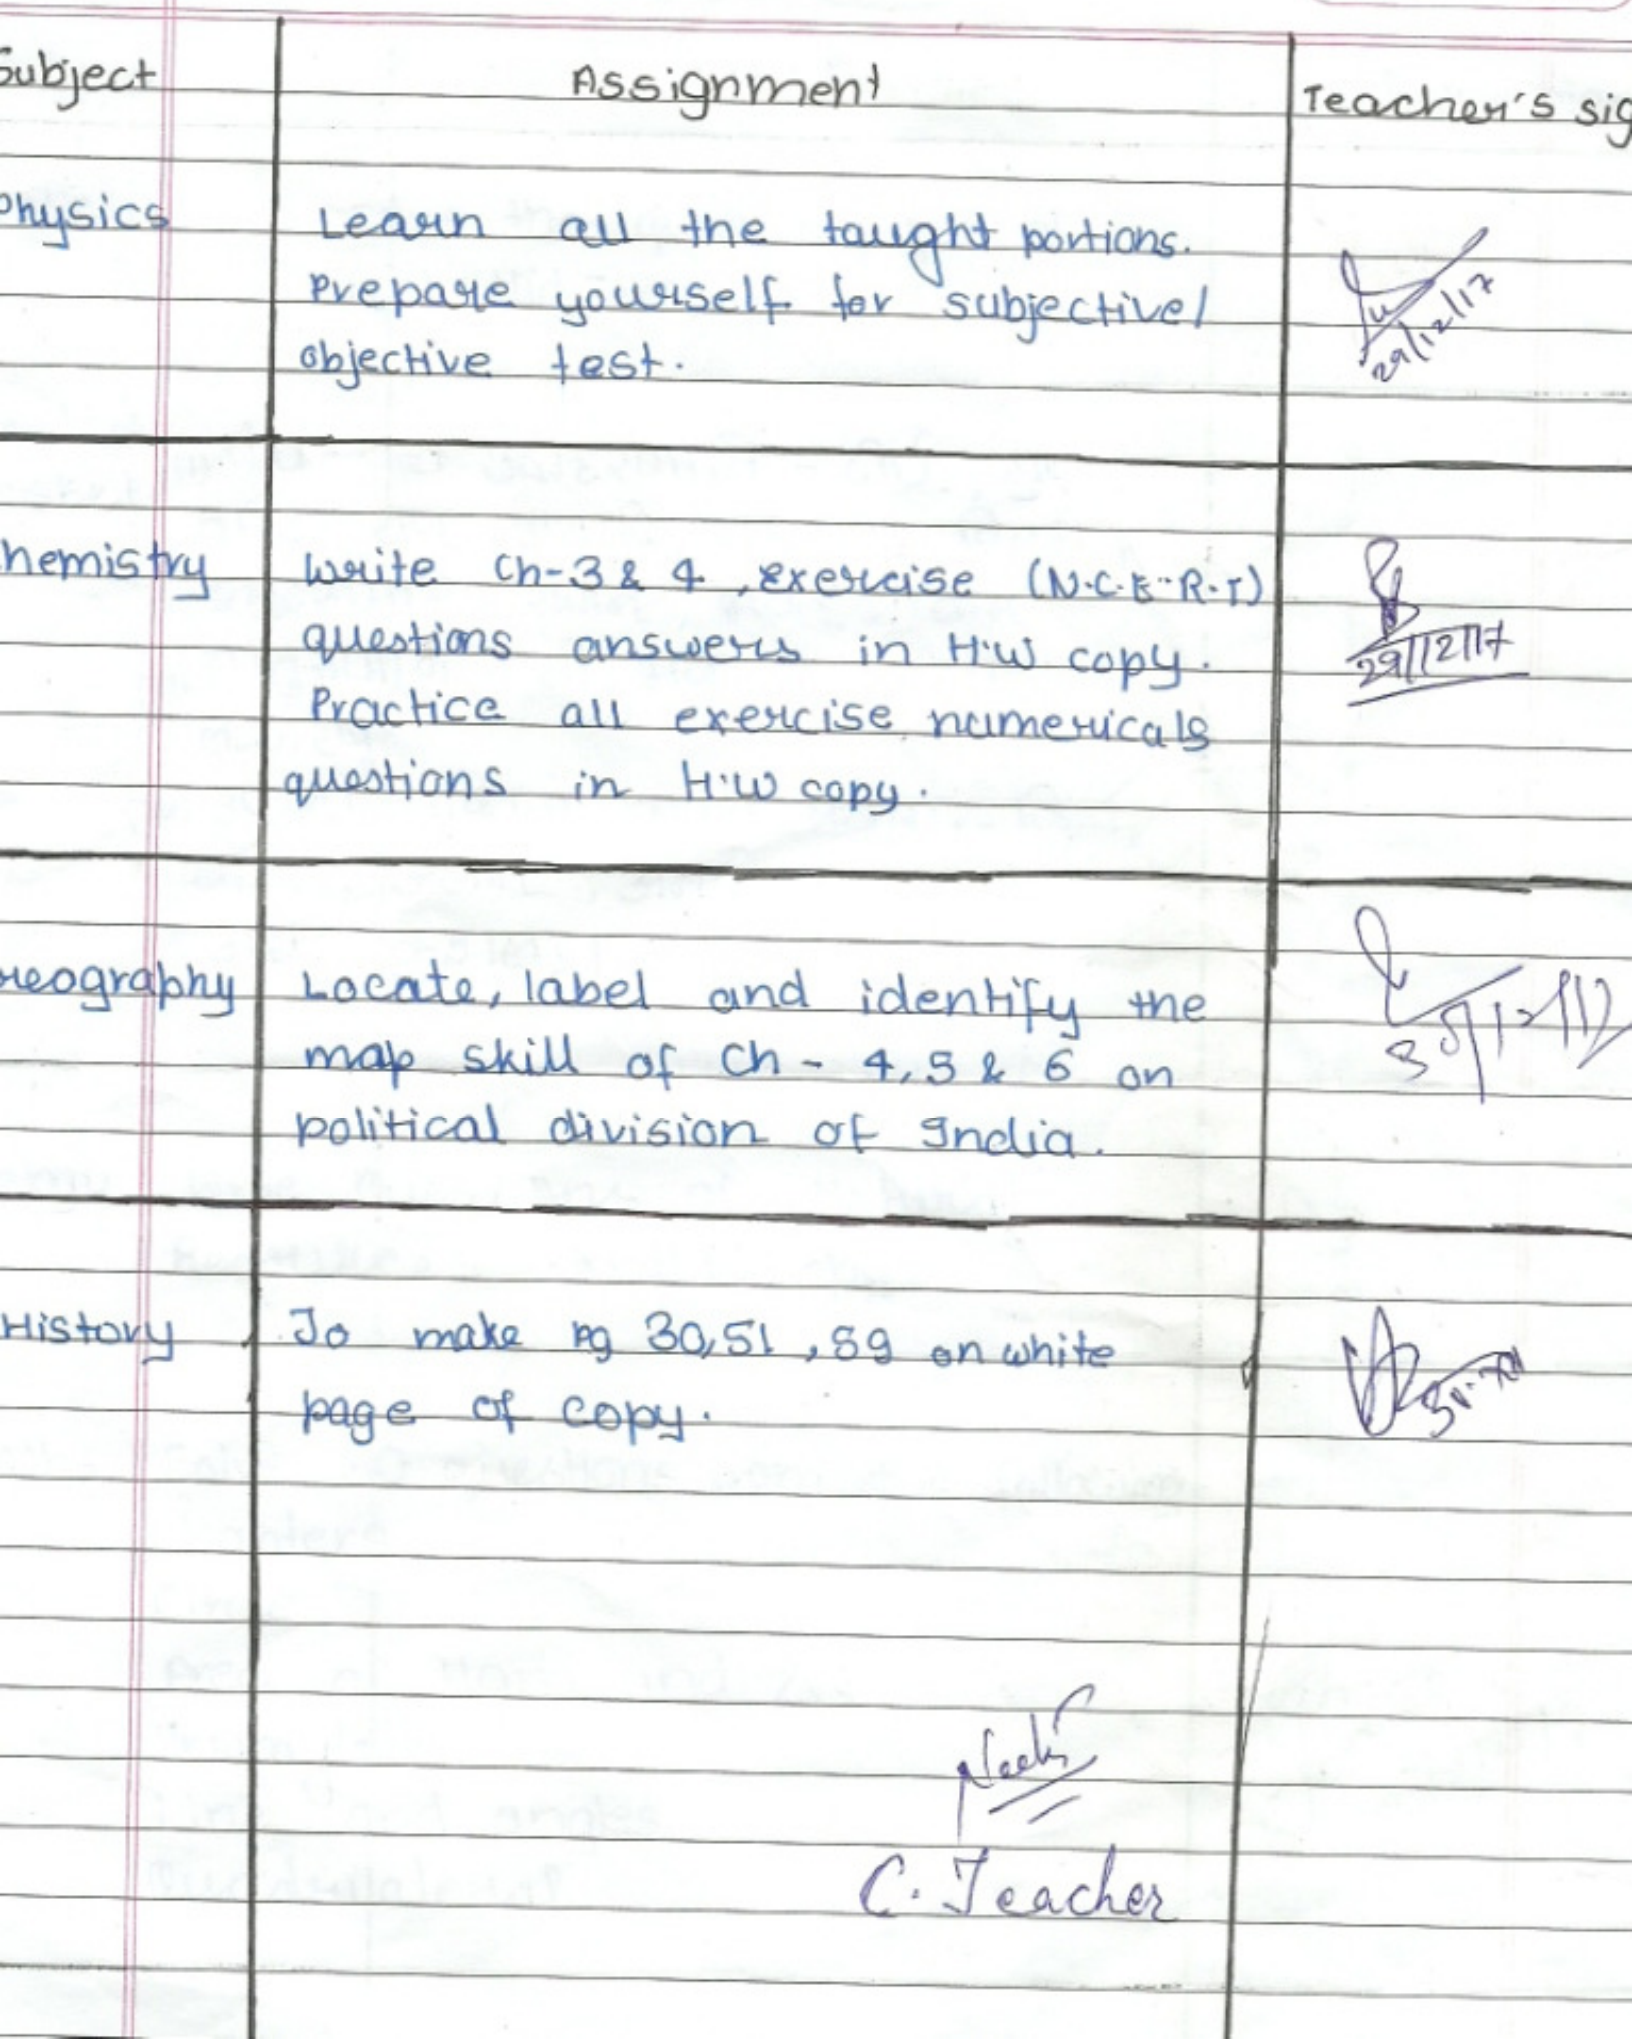 Subject Assignment Teacher's sig
Physics Learn all the taught portions.
Prepare yourself for subjective/
objective test.
29/12/17
hemistry Write Ch-3 & 4, exercise (N.C.E.R.T)
questions answers in H.W copy.
29/12/17
Practice all exercise numericals
questions in H.W copy.
eography Locate, label and identify the
map skill of Ch - 4, 5 & 6 on
political division of India.
History To make pg 30, 51, 59 on white
page of copy.
C. Teacher